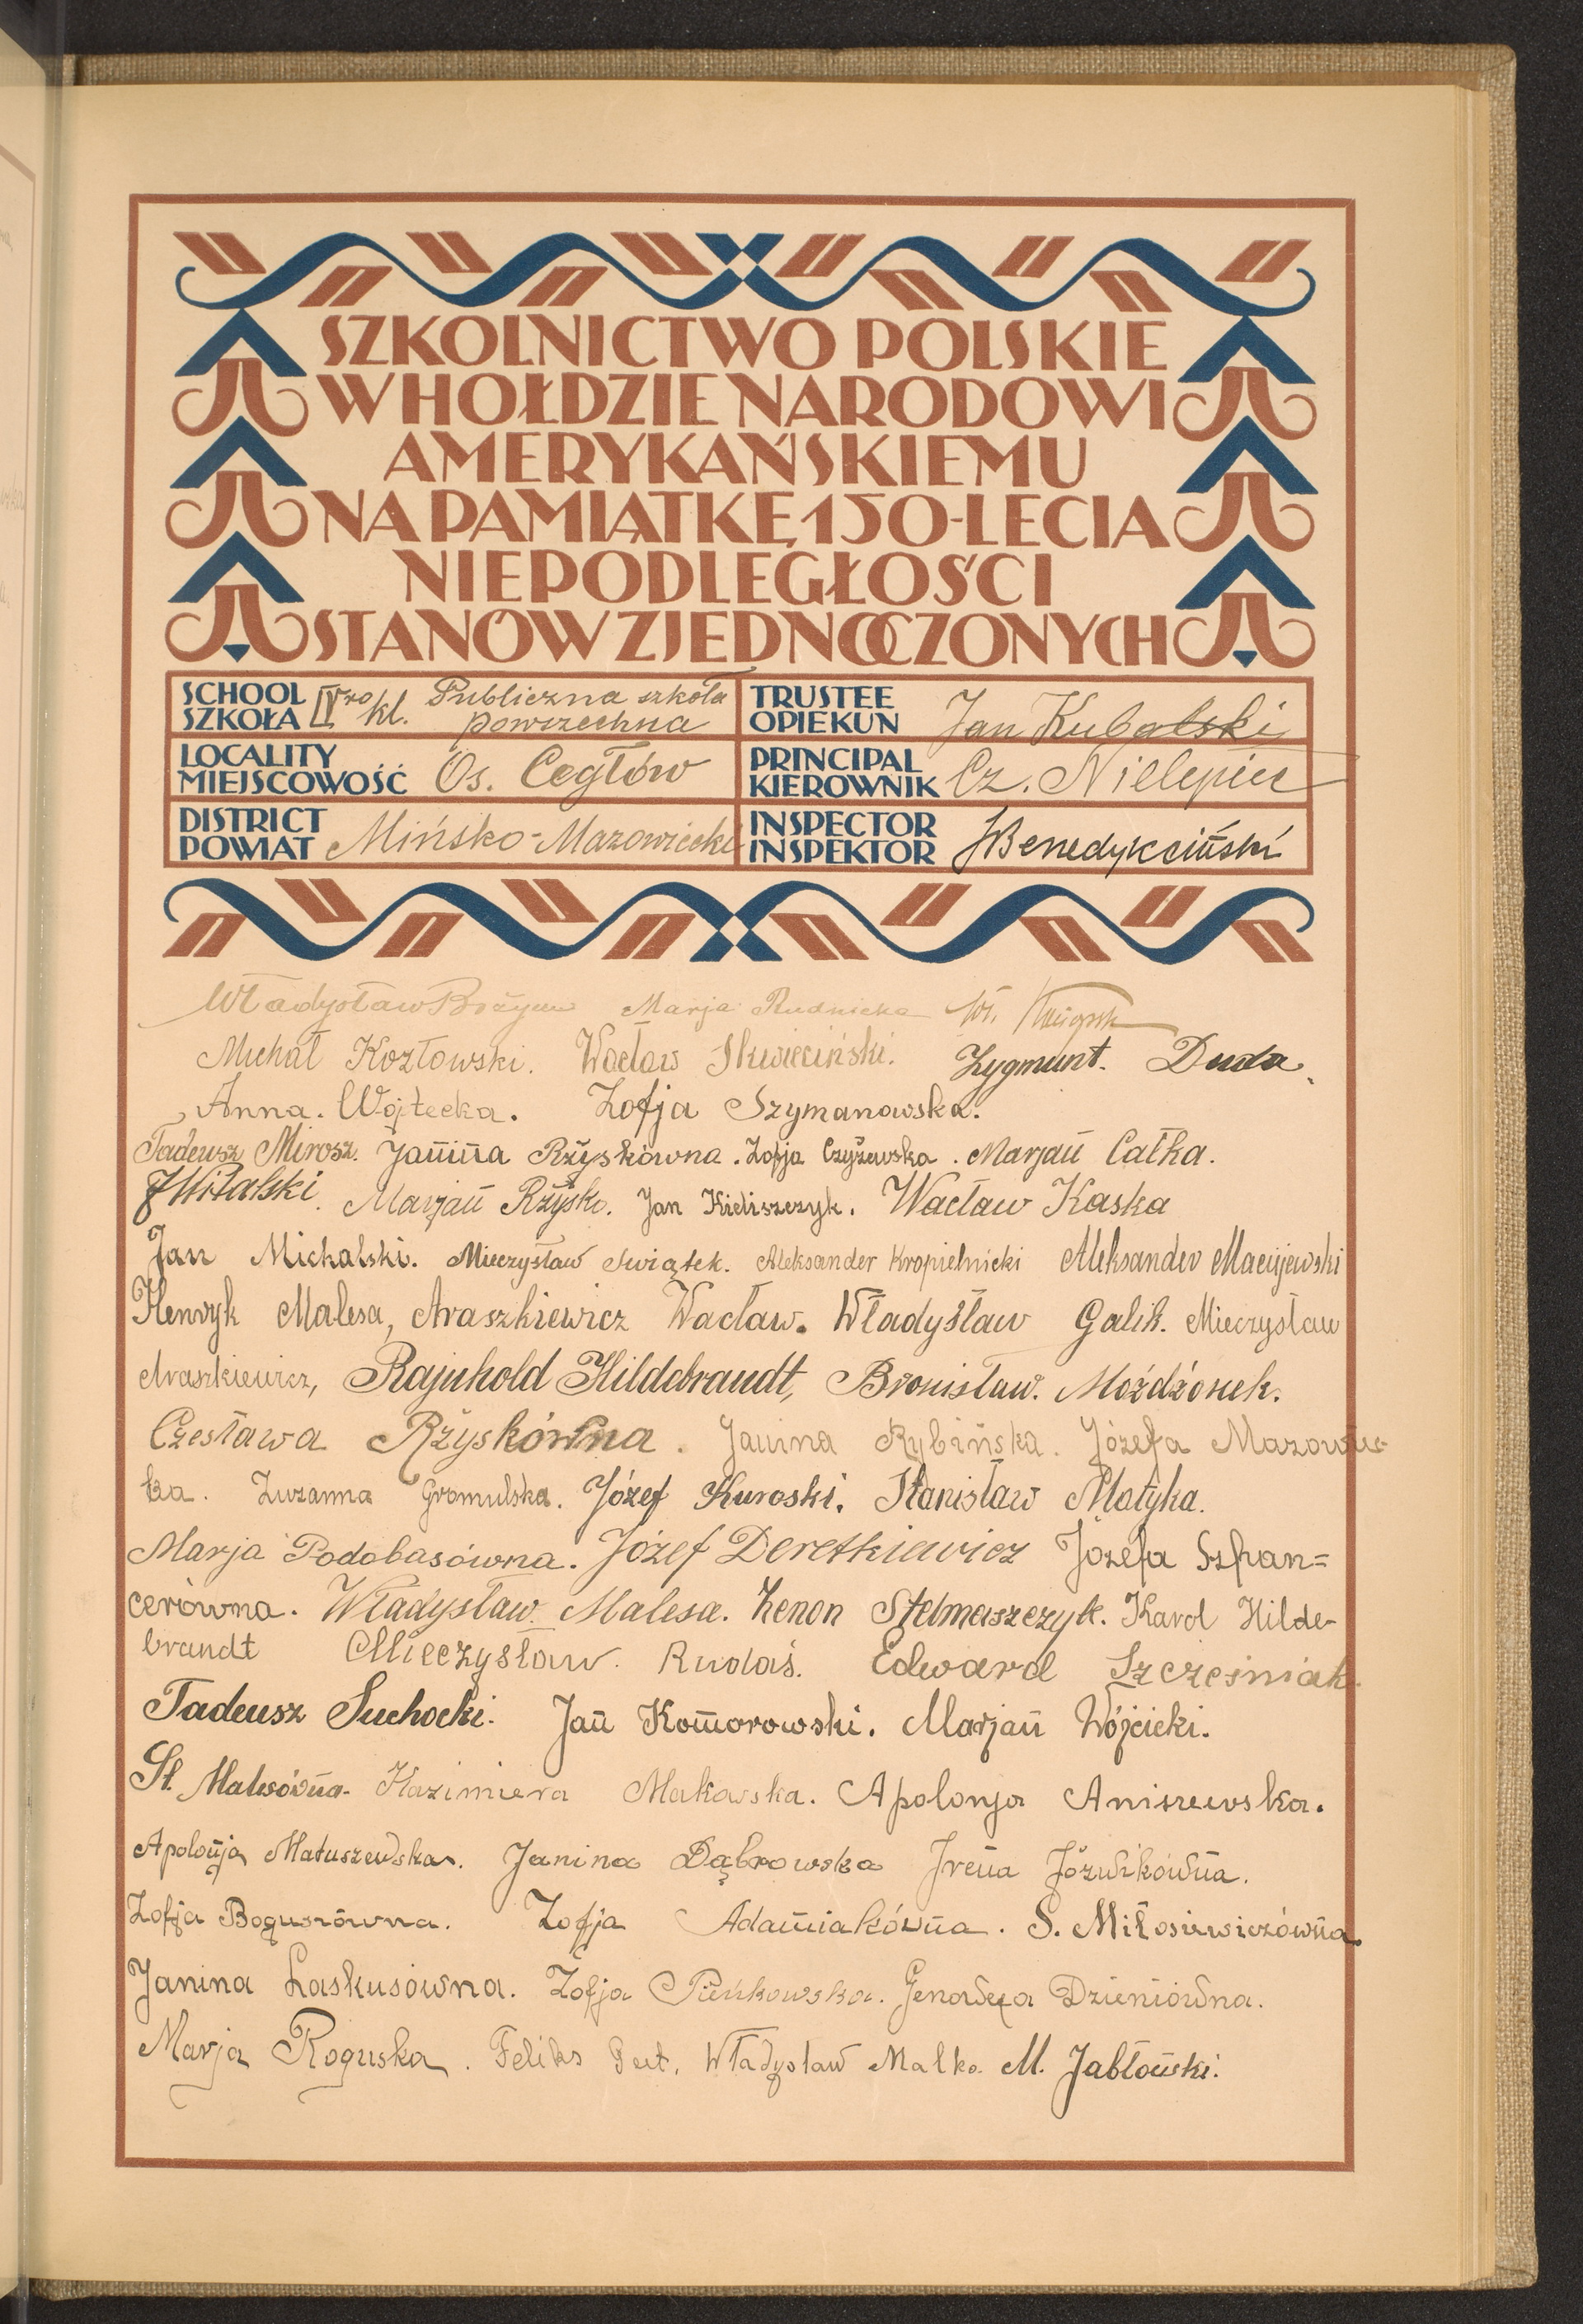 SZKOLNICTWO POLSKIE
W HOŁDZIE NARODOWI
AMERYKAŃSKIEMU
NA PAMIĄTKĘ 150-LECIA
NIEPODLEGŁOŚCI
STANÓW ZJEDNOCZONYCH
SCHOOL
SZKOŁA IVro kl. Publiczna szkoła powszechna
TRUSTEE
OPIEKUN Jan Kubalski
LOCALITY
MIEJSCOWOŚĆ Os. Cegłów
PRINCIPAL
KIEROWNIK Cz. Nielepiec
DISTRICT
POWIAT Mińsko-Mazowiecki
INSPECTOR
INSPEKTOR Benedykciński
Władysław Bożym Marja Rudnicka Wł.
Michał Kozłowski. Wacław Skwieciński. Zygmunt. Duda.
Anna. Wojtecka. Zofja Szymanowska.
Tadeusz Mirosz. Janina Rżyskówna. Zofja Czyżewska. Marjan Całka.
J Witalski. Marjan Rżysko. Jan Kieliszczyk. Wacław Kaska
Jan Michalski. Mieczysław Świątek. Aleksander Kropielnicki Aleksander Maciejewski
Henryk Malesa, Araszkiewicz Wacław. Władysław Galik. Mieczysław
Araszkiewicz, Rajnhold Hildebrandt, Bronisław. Moździonek.
Czesława Rżyskówna. Janina Rybińska. Józefa Mazowiec-
ka. Zuzanna Gromulska. Józef Kuroski. Stanisław Matyka.
Marja Podobasówna. Józef Deretkiewicz Józefa Szpan=
cerówna. Władysław. Malesa. Zenon Stelmaszczyk. Karol Hilde-
brandt Mieczysław. Rudaś. Edward Szcześniak.
Tadeusz Suchocki. Jan Komorowski. Marjan Wójcicki.
St. Malesówna. Kazimiera Makowska. Apolonja Aniszewska.
Apolonja Matuszewska. Janina Dąbrowska Irena Józwikówna.
Zofja Boguszówna. Zofja Adamiakówna. S. Miłosiewiczówna.
Janina Laskusówna. Zofja Pieńkowska. Genowefa Dzieniówna.
Marja Roguska. Feliks Gut. Władysław Malko. M. Jabłoński.